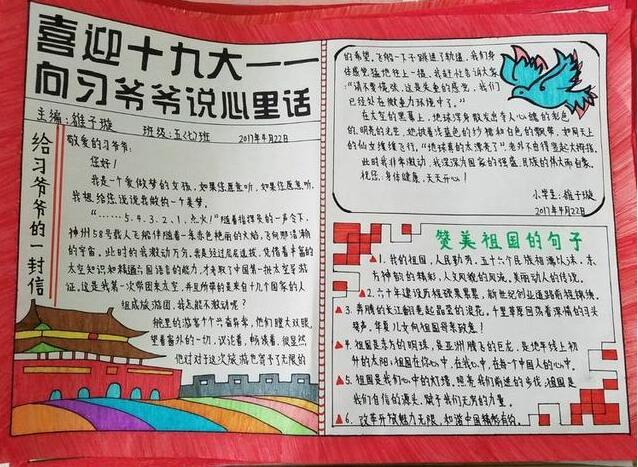 喜迎十九大——
向习爷爷说心里话
主编:雒子璇 班级:五(七)班 2017年4月22日
给习爷爷的一封信
敬爱的习爷爷:
您好!
我是一个爱做梦的女孩,如果您愿意听,如果您愿意听,
我想给您说说我做的一个美梦。
“……5.4.3.2.1.点火!”随着指挥员的一声令下,
神州58号载人飞船伴随着一条赤色艳丽的火焰,飞向那清湖
的宇宙。此时的我激动万分。我是经过层层选拔,凭借着丰富的
太空知识和精通六国语言的能力,才考取了中国第一批太空导游
证。这是我第一次带团来太空,并且所带的是来自十九个国家的人
组成旅游团。我怎能不激动呢?
舱里的游客个个兴奋异常,他们瞪大双眼,
望着窗外的一切,议论着,畅谈着,很显然
他们对于这次旅游也寄予了无限的
的希望。飞船一下子跳进了轨道,我们身
体感觉猛地往上一撞,我赶忙告诉大家:
“请不要慌张,这是失重的感觉,我们
已经处在微重力环境中了。”
在太空的黑幕上,地球浑身散发出夺人心魄的彩色
的、明亮的光芒,她披着浅蓝色的纱裙和白色的飘带,如同天上
的仙女缓缓飞行。“地球真的太漂亮了”老外不由得竖起大拇指。
此时我非常激动,我深深为国家的强盛、民族的伟大而自豪。
祝您:身体健康,天天开心!
小学生:雒子璇
2017年4月22日
赞美祖国的句子
1、我的祖国,人民勤劳,五十六个民族相濡以沫,东
方神韵的精彩,人文风貌的风流,美丽动人的传说。
2、六十年建设历程硕果累累,新世纪的业道路前程锦绣。
3、奔腾的长江翻卷起晶莹的浪花,千里草原回荡着深情的习头
赞声,华夏儿女向祖国母亲致意!
4、祖国是东方的明珠,是亚洲腾飞的巨龙,是地平线上初
升的太阳;祖国在你心中,在我心中,在每个中国人的心中。
5、祖国是我们心中的灯塔,照亮我们前进的步伐,祖国是
我们自信的源头,赋予我们无穷的力量。
6、改革开放魅力无限,和谐中国精彩有约。